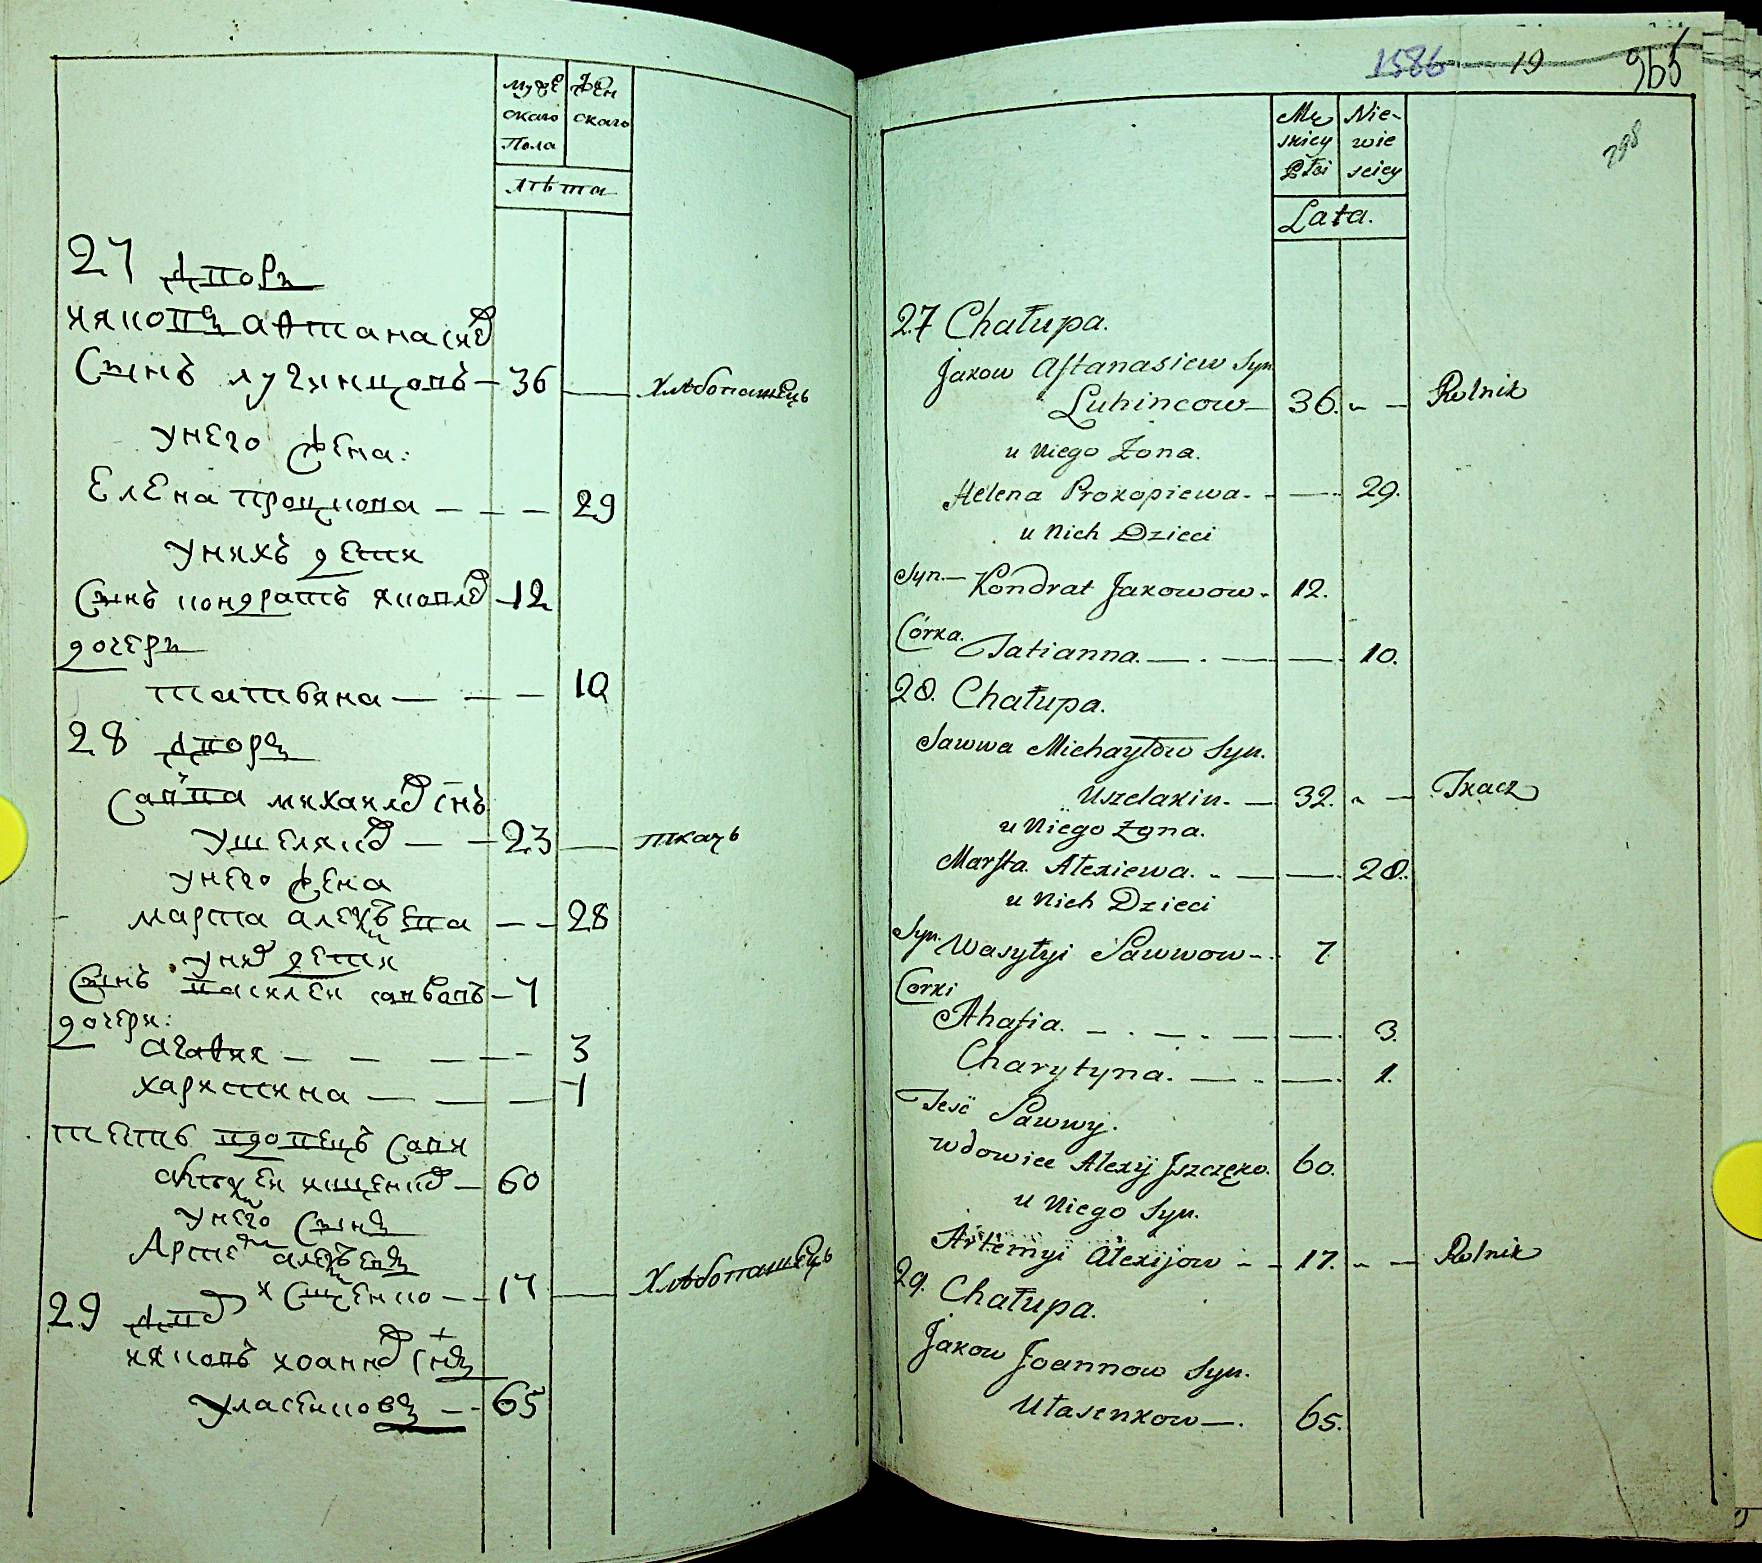 муже
скаго
пола
жен
скаго
лѣта
27 дворъ
ияковъ афтанасиев
сынъ лугинцовъ — 36 — хлѣбопашецъ
у него жена:
елена процкова — — — 29
у нихъ дети
сынъ кондратъ яковлев — 12
дочерь
татьяна — — — 10
28 дворъ
савва михаилов снъ
ушеляков — — 23 — ткачь
у него жена
марта алексѣева — — 28
у них дети
сынъ василеи саввовъ — 7
дочери:
агафия — — — — 3
харитина — — — 1
тесть вдовецъ савы
алексеи ищенко — 60
у него сынъ
Арте алексѣевъ
ищенко — — 17 — хлѣбопашецъ
29 дво
ияковъ иоаннов снъ
уласенковъ — — 65
1586 19 965
398
Mę
skiey
Płci
Nie-
wie
sciey
Lata.
27 Chałupa.
Jakow Aftanasiew Syn
Luhincow — 36. „ — Rolnik
u Niego Żona.
Helena Prokopiewa. - — 29.
u Nich Dzieci
Syn. — Kondrat Jakowow. 12.
Córka. Tatianna. — . — — 10.
28. Chałupa.
Sawwa Michayłow Syn.
Uszelakin. — 32. „ — Tkacz
u Niego Żona.
Marfta Alexiewa. - — — 28.
u Nich Dzieci
Syn. Wasyłyi Sawwow - . 7
Corki
Ahafia. — . — - — — 3.
Charytyna. — - — 1.
Tesć Sawwy.
wdowiec Alexij Jszczęko. 60.
u Niego Syn.
Artemyi Alexijow - - 17. „ — Rolnik
29. Chałupa.
Jakow Joannow Syn.
Ułasenkow —. 65.